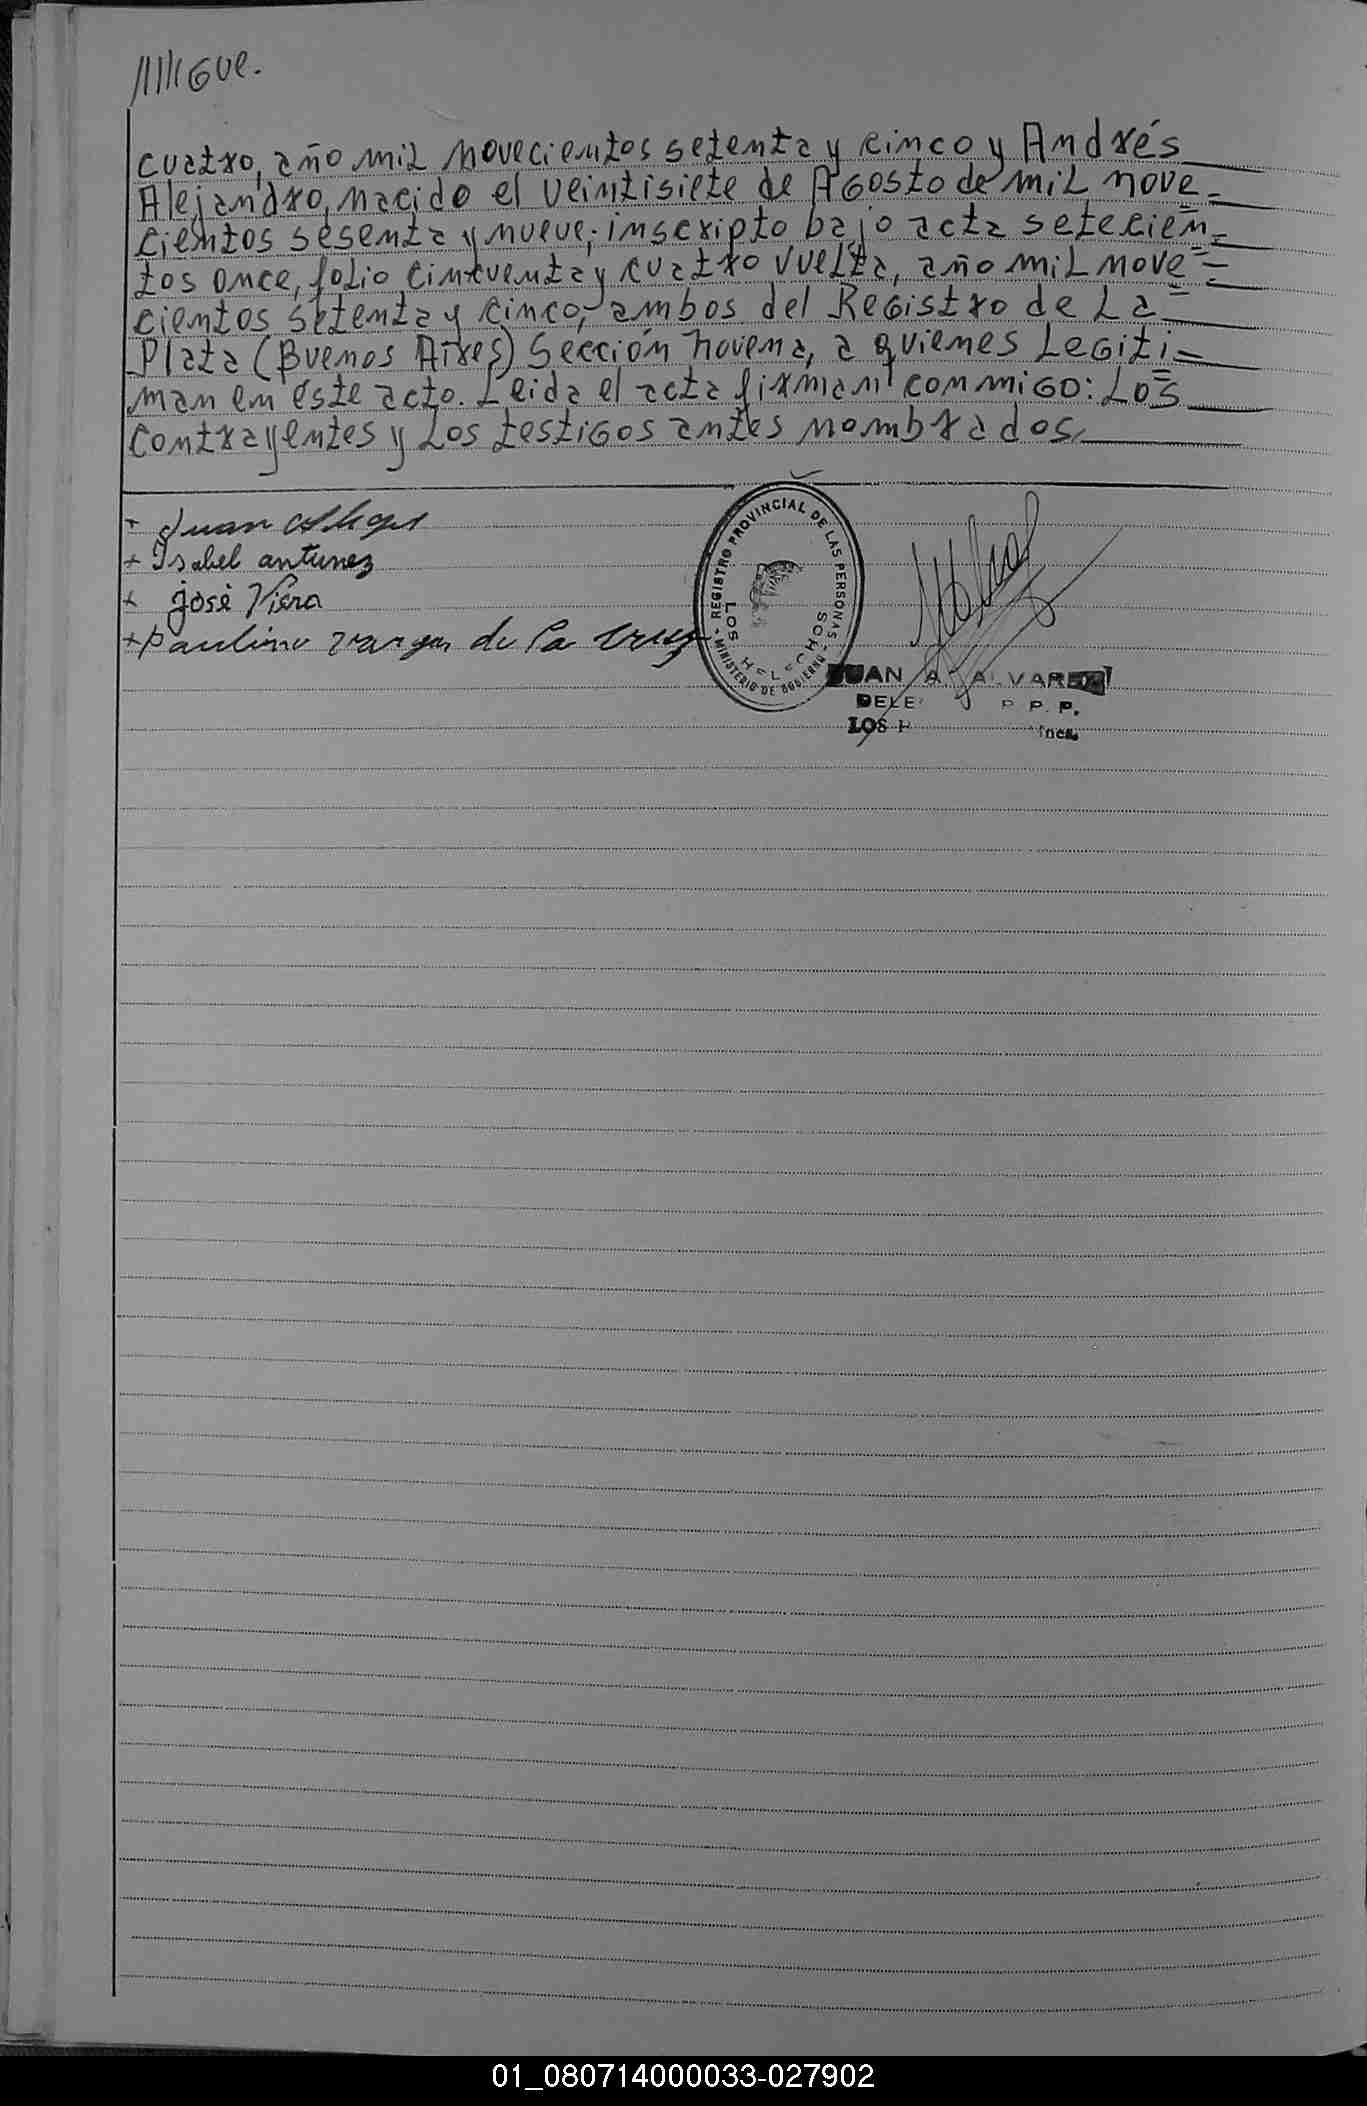 /////Gue.
cuatro, año mil novecientos setenta y cinco y Andrés
Alejandro, nacido el veintisiete de Agosto de mil nove-
cientos sesenta y nueve; inscripto bajo acta setecien-
tos once, folio cincuenta y cuatro vuelta, año mil nove-
cientos setenta y cinco, ambos del Registro de La
Plata (Buenos Aires) Sección novena, a quienes Legiti-
man en éste acto. Leida el acta firman conmigo: Los
Contrayentes y Los testigos antes nombrados.
+ Juan
+ Isabel antunez
+ José Viera
+ Paulino vargas de la Cruz
REGISTRO PROVINCIAL DE LAS PERSONAS
MINISTERIO DE GOBIERNO
LOS HELECHOS
JUAN A. ALVAREZ
DELE P. P.
LOS H
01_080714000033-027902